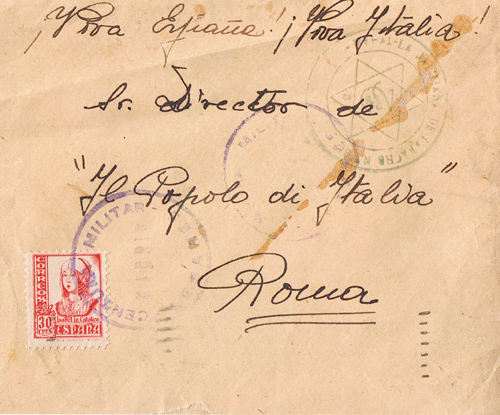 ¡Viva España! ¡Viva Italia!
Sr. Director de
"Il Popolo di Italia"
Roma
MILITAR
CENSURA
CORREOS
30
CTS
Isabel la Católica
ESPAÑA
LARACHE